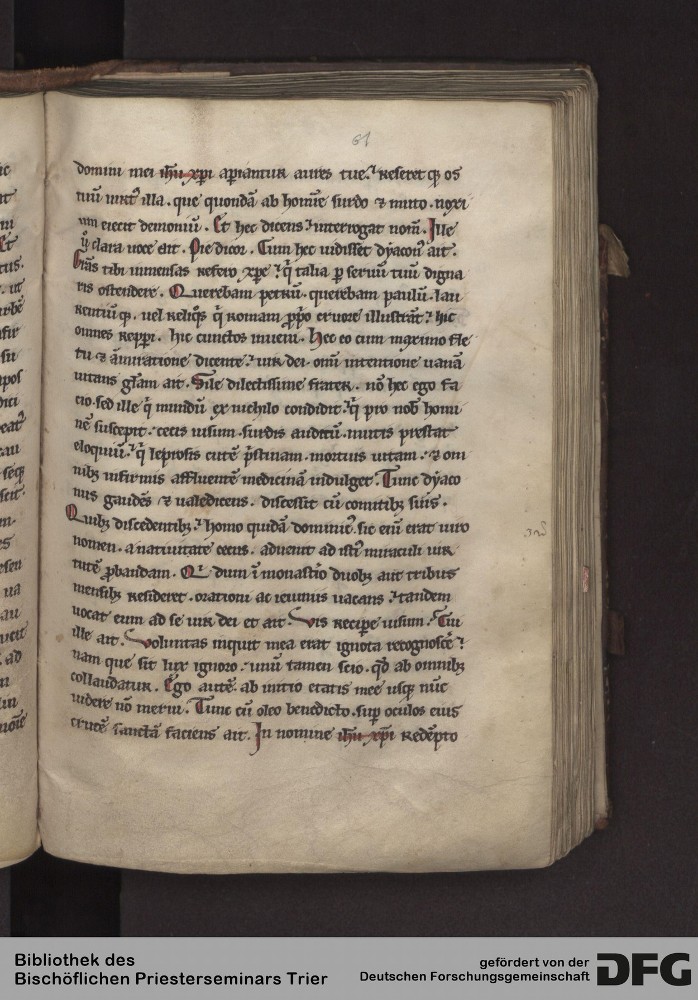 61
domini mei ihu xpi apiantur aures tue. & reseret q; os
tuū uirt illa. que quondā ab homīe surdo & muto. noxi
um eiecit demoniū. Et hec dicens interrogat nom̄. Ille
clara uoce ait. Pie dicor. Cum hec uidisset dyacon⁹ ait.
Gr̄as tibi inmensas refero xpe. q̄ talia p seruum tuū digna
ris ostendere. Querebam petrū. querebam paulū. lau
rentiūq;. uel reliq̄s q̄ romam ppo cruore illustrāt. hic
omnes repperi. hic cunctos inueni. Hec eo cum maximo fle
tu & āmiratione dicente. uir dei. om̄i intentione uanā
uitans gl̄am ait. Sile dilectissime frater. nō hec ego fa
cio. sed ille q̄ mundū ex nichilo condidit. q̄ pro nob̄ homi
nē suscepit. cecis uisum. surdis auditū. mutis prestat
eloquiū. q̄ leprosis cutē p̄stinam. mortuis uitam. & om
nib; infirmis affluentē medicinā indulget. Tunc dyaco
nus gaudēs & ualedicens. discessit cū comitib; suis.
Quib; discedentib;. homo quidā dominic⁹. sic enī erat uiro
nomen. a natiuitate cecus. aduenit ad isti⁹ miraculi uir
tutē pbandam. Qi dum ī monast̄io duob; aut tribus
mensib; resideret. orationi ac ieiuniis uacans. tandem
uocat eum ad se uir dei et ait. Vis recipe uisum. Cui
ille ait. Voluntas inquit mea erat ignota recognoscē.
nam que sit lux ignoro. unū tamen scio. qd ab omnib;
collaudatur. Ego autē. ab initio etatis mee usq; nūc
uidere nō merui. Tunc cū oleo benedicto. sup oculos eius
crucē sanctā faciens ait. In nomine ihu xpi redēpto
Bibliothek des
Bischöflichen Priesterseminars Trier
gefördert von der
Deutschen Forschungsgemeinschaft
DFG